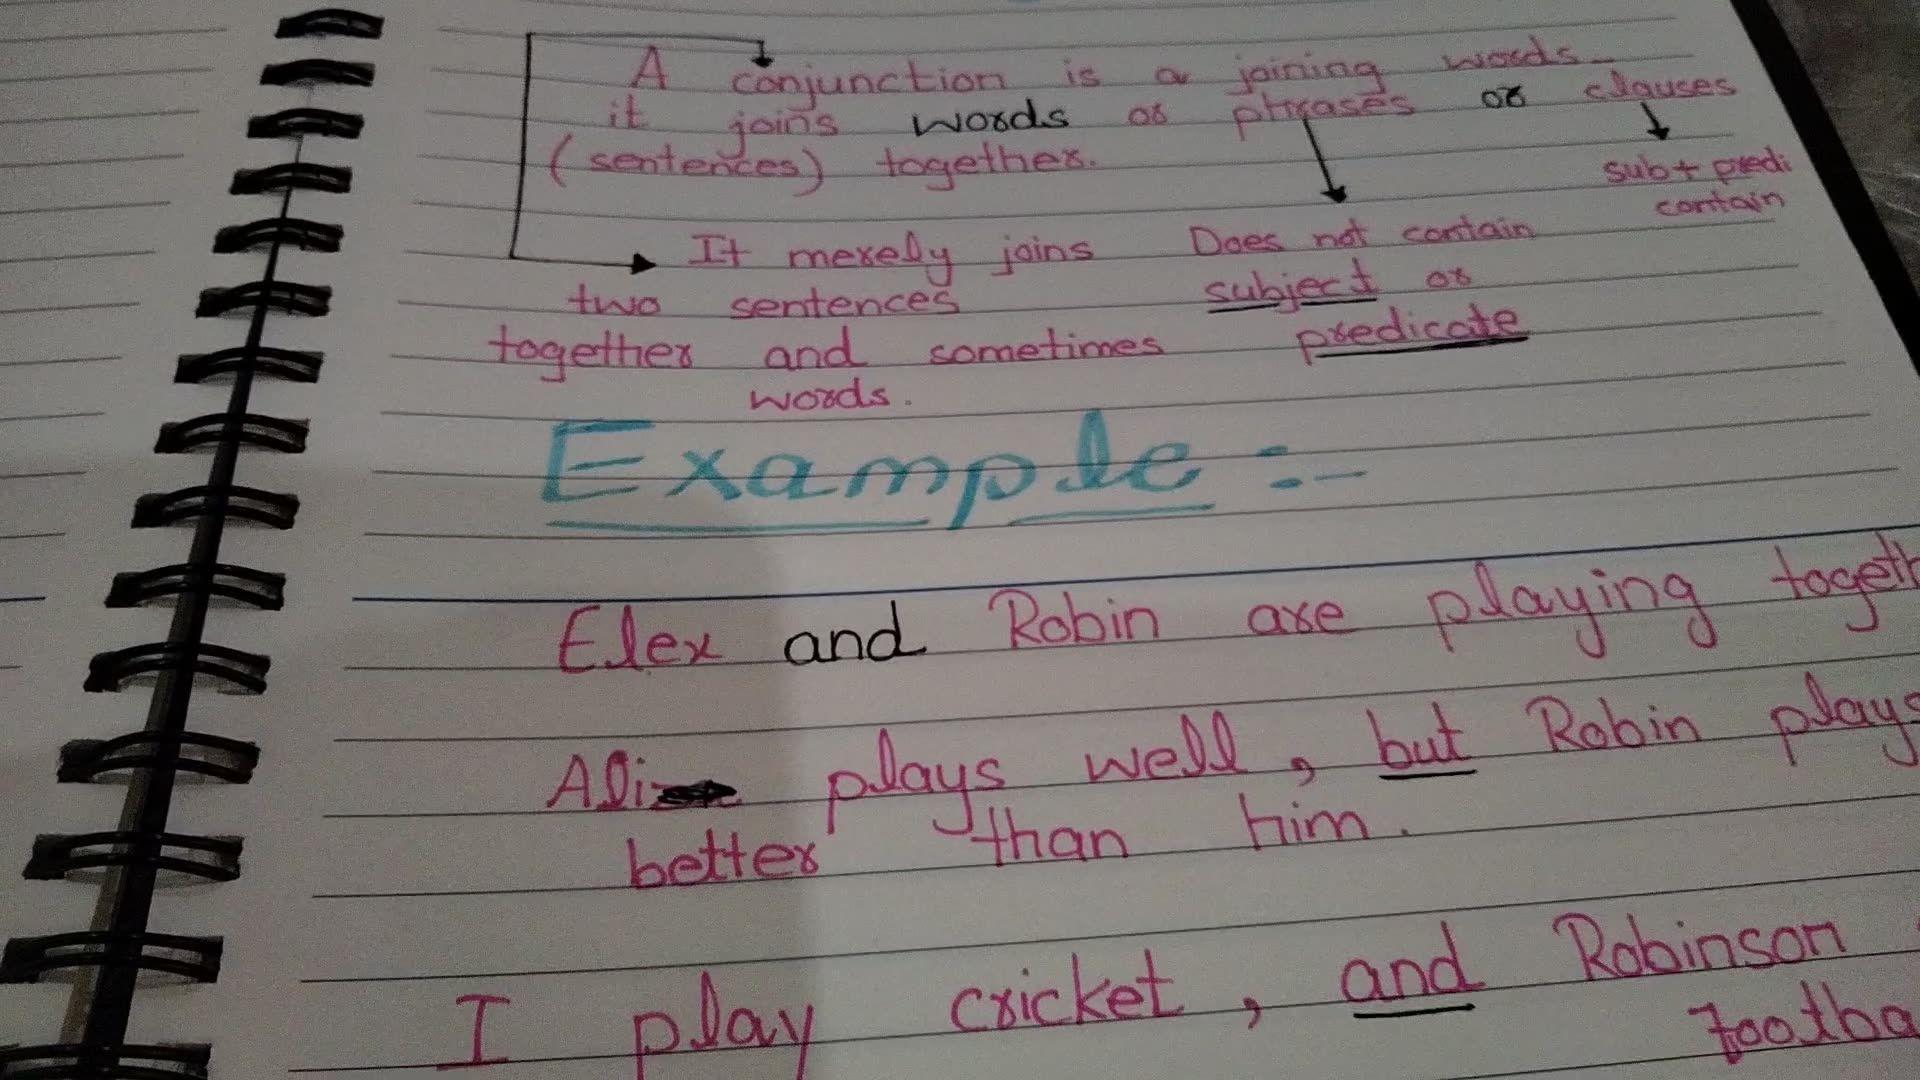 A conjunction is a joining words.
it joins words or phrases or clauses
(sentences) together.
sub + predi
contain
It merely joins
two sentences
together and sometimes
words.
Does not contain
subject or
predicate
Example :-
Elex and Robin are playing togeth
Ali plays well, but Robin plays
better than him.
I play cricket, and Robinson
footba